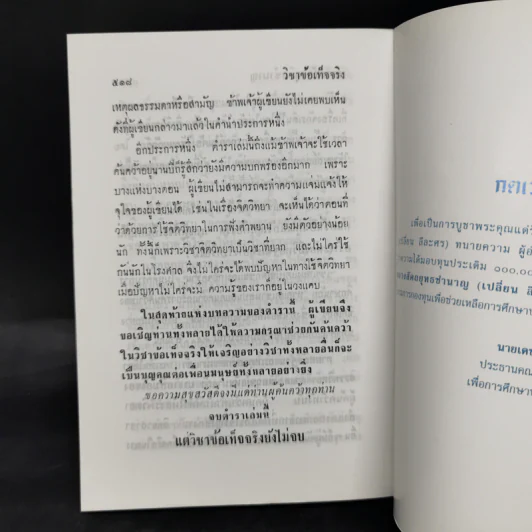 ๕๑๘
วิชาข้อเท็จจริง
เหตุผลธรรมดาหรือสามัญ ข้าพเจ้าผู้เขียนยังไม่เคยพบเห็น
ดังที่ผู้เขียนกล่าวมาแล้วในคำนำประการหนึ่ง
อีกประการหนึ่ง ตำราเล่มนี้ถึงแม้ข้าพเจ้าจะใช้เวลา
ค้นคว้าอยู่นานปีก็รู้สึกว่ายังมีความบกพร่องอีกมาก เพราะ
บางแห่งบางตอน ผู้เขียนไม่สามารถจะทำความแจ่มแจ้งให้
จุใจของผู้เขียนได้ เช่นในเรื่องจิตวิทยา จะเห็นได้ว่าตอนที่
ว่าด้วยการใช้จิตวิทยาในการฟังคำพยาน ยังมีตัวอย่างน้อย
นัก ทั้งนี้ก็เพราะวิชาจิตวิทยาเป็นวิชาที่ยาก และไม่ใคร่ใช้
กันนักในโรงศาล จึงไม่ใคร่จะได้พบปัญหาในทางใช้จิตวิทยา
เมื่อปัญหาไม่ใคร่จะมี ความรู้ของเราก็อยู่ในวงแคบ
ในสุดท้ายแห่งบทความของตำรานี้ ผู้เขียนจึง
ขอเชิญท่านทั้งหลายได้ให้ความกรุณาช่วยกันค้นคว้า
ในวิชาข้อเท็จจริงให้เจริญอย่างวิชาทั้งหลายอื่นก็จะ
เป็นบุญคุณต่อเพื่อนมนุษย์ทั้งหลายอย่างยิ่ง
ขอความสุขสวัสดีจงมีแด่ท่านผู้ค้นคว้าทุกท่าน
จบตำราเล่มนี้
แต่วิชาข้อเท็จจริงยังไม่จบ
เพื่อเป็นการบูชาพระคุณแด่
ทนายความ
ได้มอบทุนประเดิม ๑๐๐,๐๐
(เปลี่ยน
กองทุนเพื่อช่วยเหลือการศึกษา
นายเดช
ประธานคณ
เพื่อการศึกษา